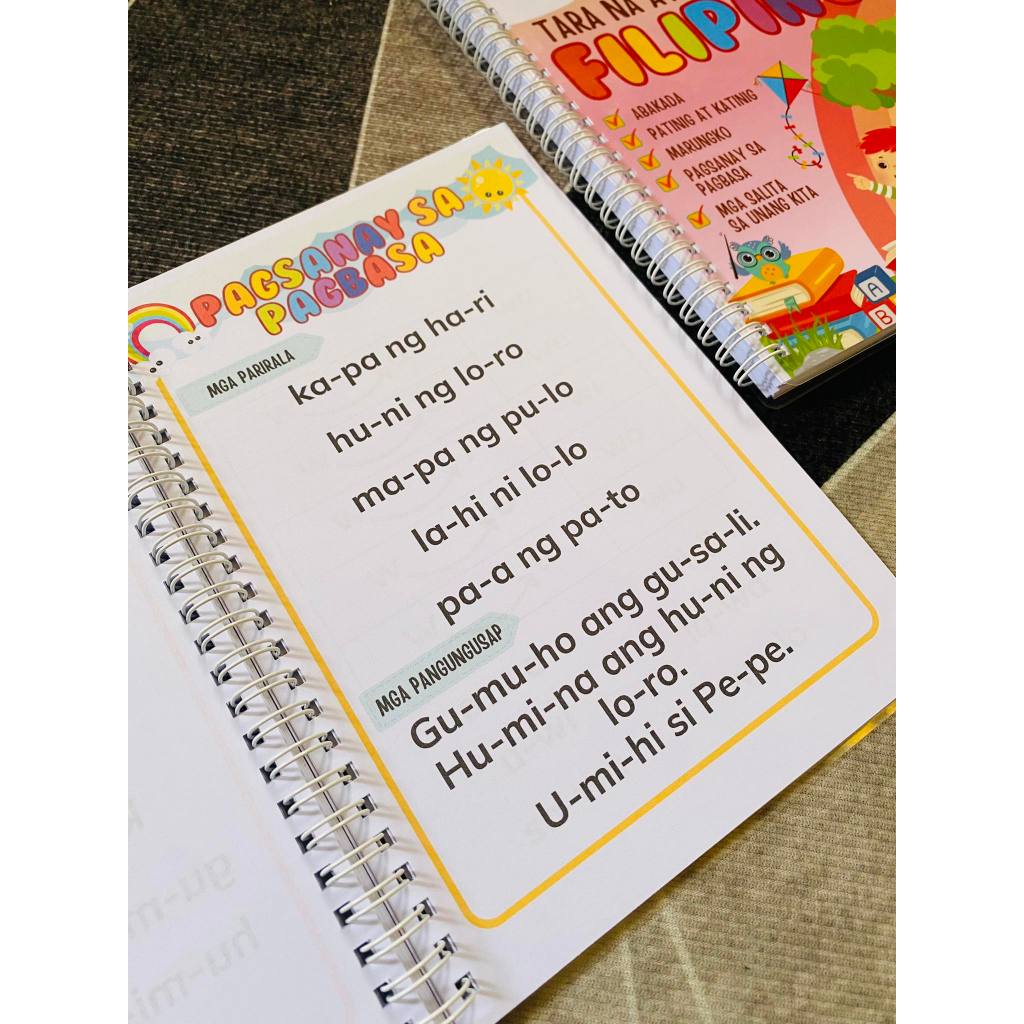 PAGSANAY SA
PAGBASA
MGA PARIRALA
ka-pa ng ha-ri
hu-ni ng lo-ro
ma-pa ng pu-lo
la-hi ni lo-lo
pa-a ng pa-to
MGA PANGUNGUSAP
Gu-mu-ho ang gu-sa-li.
Hu-mi-na ang hu-ni ng
lo-ro.
U-mi-hi si Pe-pe.
TARA NA
FILIPIN
ABAKADA
PATINIG AT KATINIG
MARUNGKO
PAGSANAY SA
PAGBASA
MGA SALITA
SA UNANG KITA
A
B